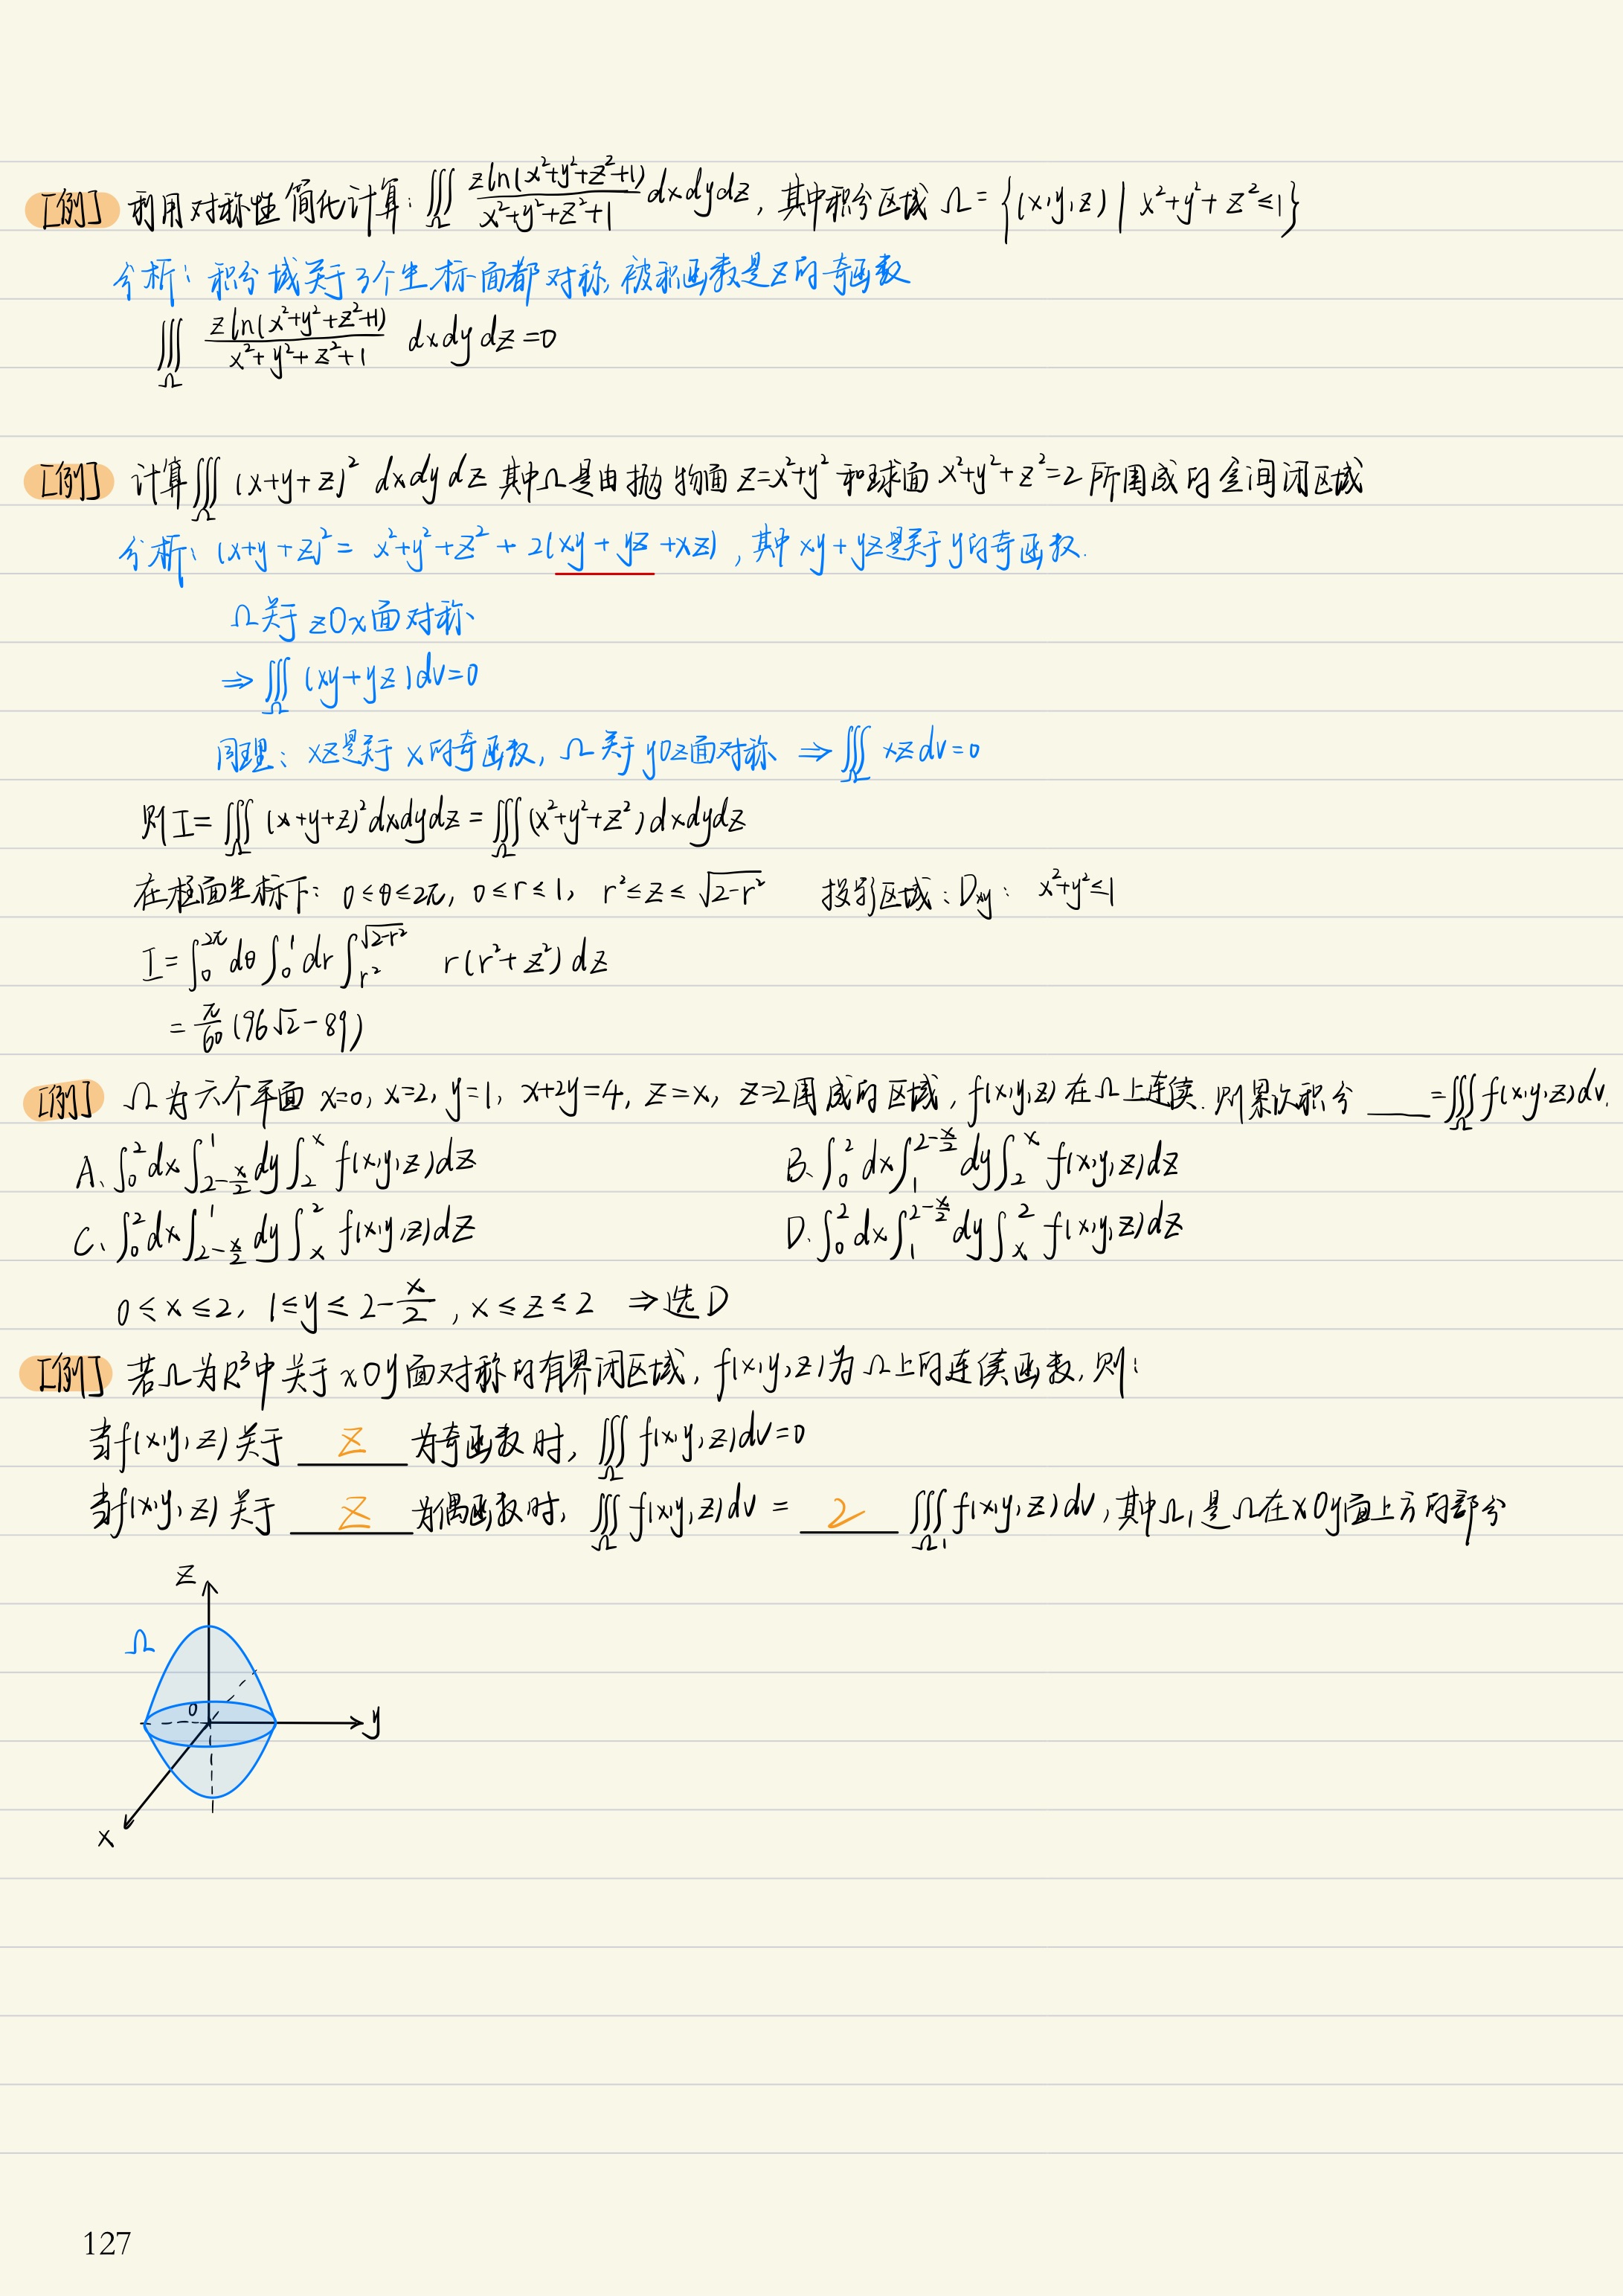 [例] 利用对称性简化计算: ∭_Ω zln(x²+y²+z²+1)/(x²+y²+z²+1) dxdydz, 其中积分区域 Ω = {(x,y,z) | x²+y²+z²≤1}
分析: 积分域关于3个坐标面都对称, 被积函数是z的奇函数
∭_Ω zln(x²+y²+z²+1)/(x²+y²+z²+1) dxdydz=0
[例] 计算∭_Ω (x+y+z)² dxdydz 其中Ω是由抛物面 z=x²+y² 和球面 x²+y²+z²=2 所围成的空间闭区域
分析: (x+y+z)² = x²+y²+z²+2(xy+yz+xz), 其中 xy+yz是关于y的奇函数.
Ω关于 zOx面对称
⇒ ∭_Ω (xy+yz)dv=0
同理: xz是关于 x的奇函数, Ω关于yOz面对称 ⇒ ∭_Ω xzdv=0
则I=∭_Ω (x+y+z)²dxdydz=∭_Ω (x²+y²+z²)dxdydz
在柱面坐标下: 0≤θ≤2π, 0≤r≤1, r²≤z≤√(2-r²) 投影区域: Dxy: x²+y²≤1
I=∫_0^{2π}dθ∫_0^1 dr∫_{r²}^{√(2-r²)} r(r²+z²)dz
= π/60 (96√2-89)
[例] Ω为六个平面 x=0, x=2, y=1, x+2y=4, z=x, z=2围成的区域, f(x,y,z)在Ω上连续. 则累次积分 ____ =∭_Ω f(x,y,z)dv.
A、∫_0^2 dx∫_{2-x/2}^1 dy∫_2^x f(x,y,z)dz B、∫_0^2 dx∫_1^{2-x/2} dy∫_2^x f(x,y,z)dz
C、∫_0^2 dx∫_{2-x/2}^1 dy∫_x^2 f(x,y,z)dz D、∫_0^2 dx∫_1^{2-x/2} dy∫_x^2 f(x,y,z)dz
0≤x≤2, 1≤y≤2-x/2, x≤z≤2 ⇒选D
[例] 若Ω为R³中关于xOy面对称的有界闭区域, f(x,y,z)为Ω上的连续函数, 则:
当f(x,y,z)关于 z 为奇函数时, ∭_Ω f(x,y,z)dv=0
当f(x,y,z)关于 z 为偶函数时, ∭_Ω f(x,y,z)dv = 2 ∭_{Ω1} f(x,y,z)dv, 其中Ω₁是Ω在xOy面上方的部分
z
Ω
0
y
x
127